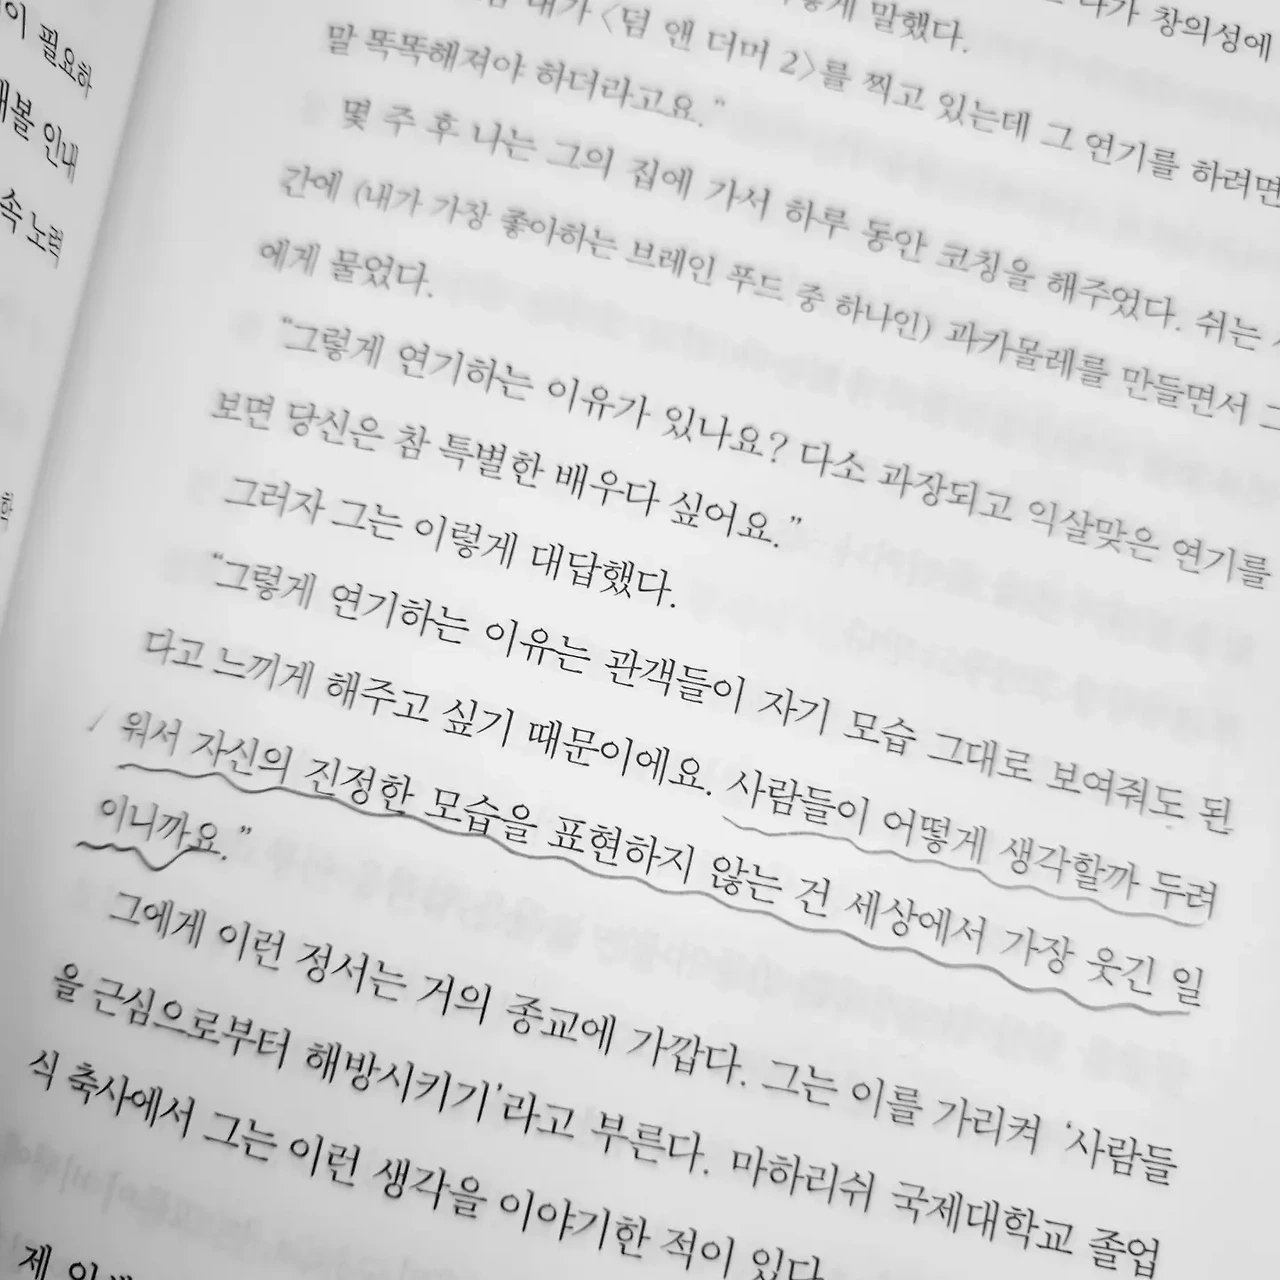 이 필요하
해볼 인내
속 노력
나가 창의성에
내가 〈덤 앤 더머 2〉를 찍고 있는데 그 연기를 하려면
말했다.
말 똑똑해져야 하더라고요."
몇 주 후 나는 그의 집에 가서 하루 동안 코칭을 해주었다. 쉬는
간에 (내가 가장 좋아하는 브레인 푸드 중 하나인) 과카몰레를 만들면서 그
에게 물었다.
"그렇게 연기하는 이유가 있나요? 다소 과장되고 익살맞은 연기를
보면 당신은 참 특별한 배우다 싶어요."
그러자 그는 이렇게 대답했다.
"그렇게 연기하는 이유는 관객들이 자기 모습 그대로 보여줘도 된
다고 느끼게 해주고 싶기 때문이에요. 사람들이 어떻게 생각할까 두려
워서 자신의 진정한 모습을 표현하지 않는 건 세상에서 가장 웃긴 일
이니까요."
그에게 이런 정서는 거의 종교에 가깝다. 그는 이를 가리켜 '사람들
을 근심으로부터 해방시키기'라고 부른다. 마하리쉬 국제대학교 졸업
식 축사에서 그는 이런 생각을 이야기한 적이 있다.